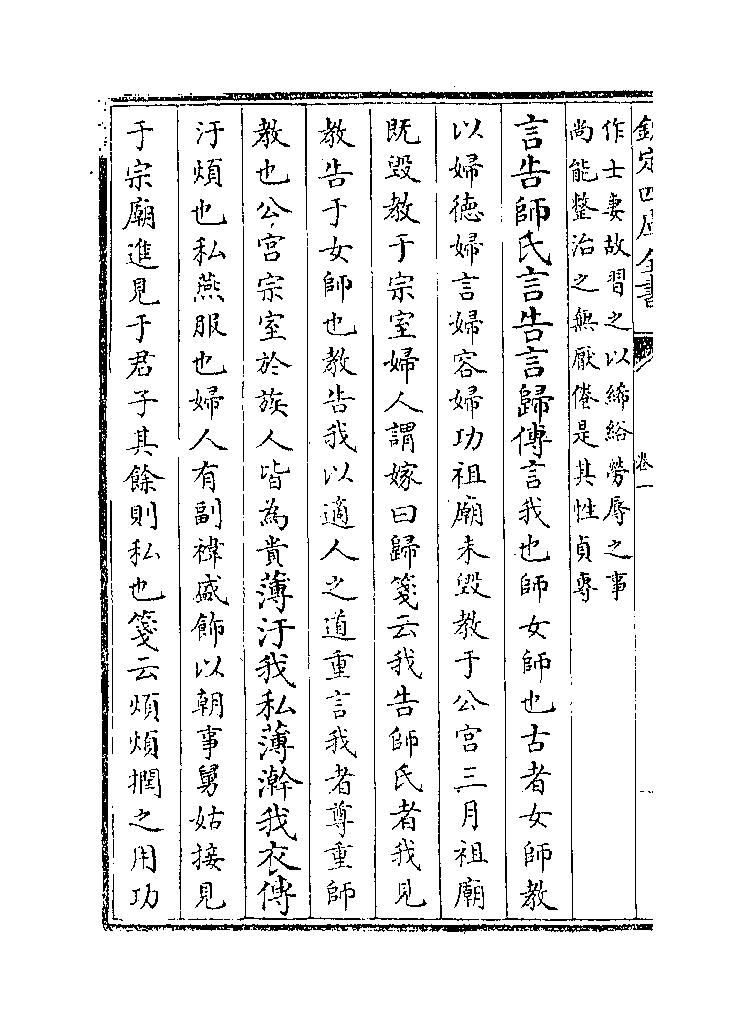 欽定四庫全書
卷一
作士妻故習之以絺綌勞辱之事
尚能整治之無厭倦是其性貞專
言告師氏言告言歸傳言我也師女師也古者女師教
以婦徳婦言婦容婦功祖廟未毀教于公宫三月祖廟
既毀教于宗室婦人謂嫁曰歸箋云我告師氏者我見
教告于女師也教告我以適人之道重言我者尊重師
教也公宫宗室於族人皆為貴薄汙我私薄澣我衣傳
汙煩也私燕服也婦人有副褘盛飾以朝事舅姑接見
于宗廟進見于君子其餘則私也箋云煩煩撋之用功